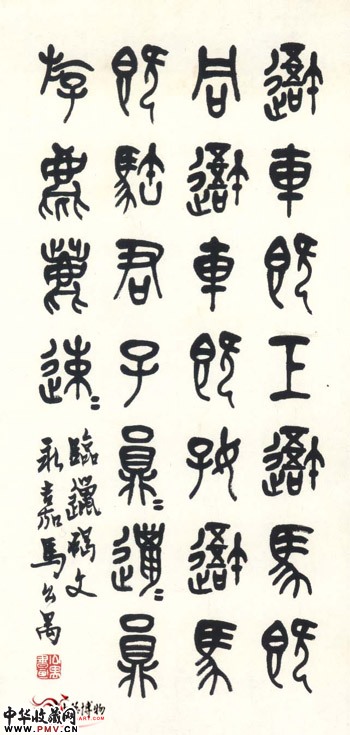 吾車既工吾馬既
同吾車既好吾馬
既𩣡君子員=邋=員
斿麀鹿速=
臨獵碣文
永嘉馬公禺
中华收藏网
www.PMV.CN